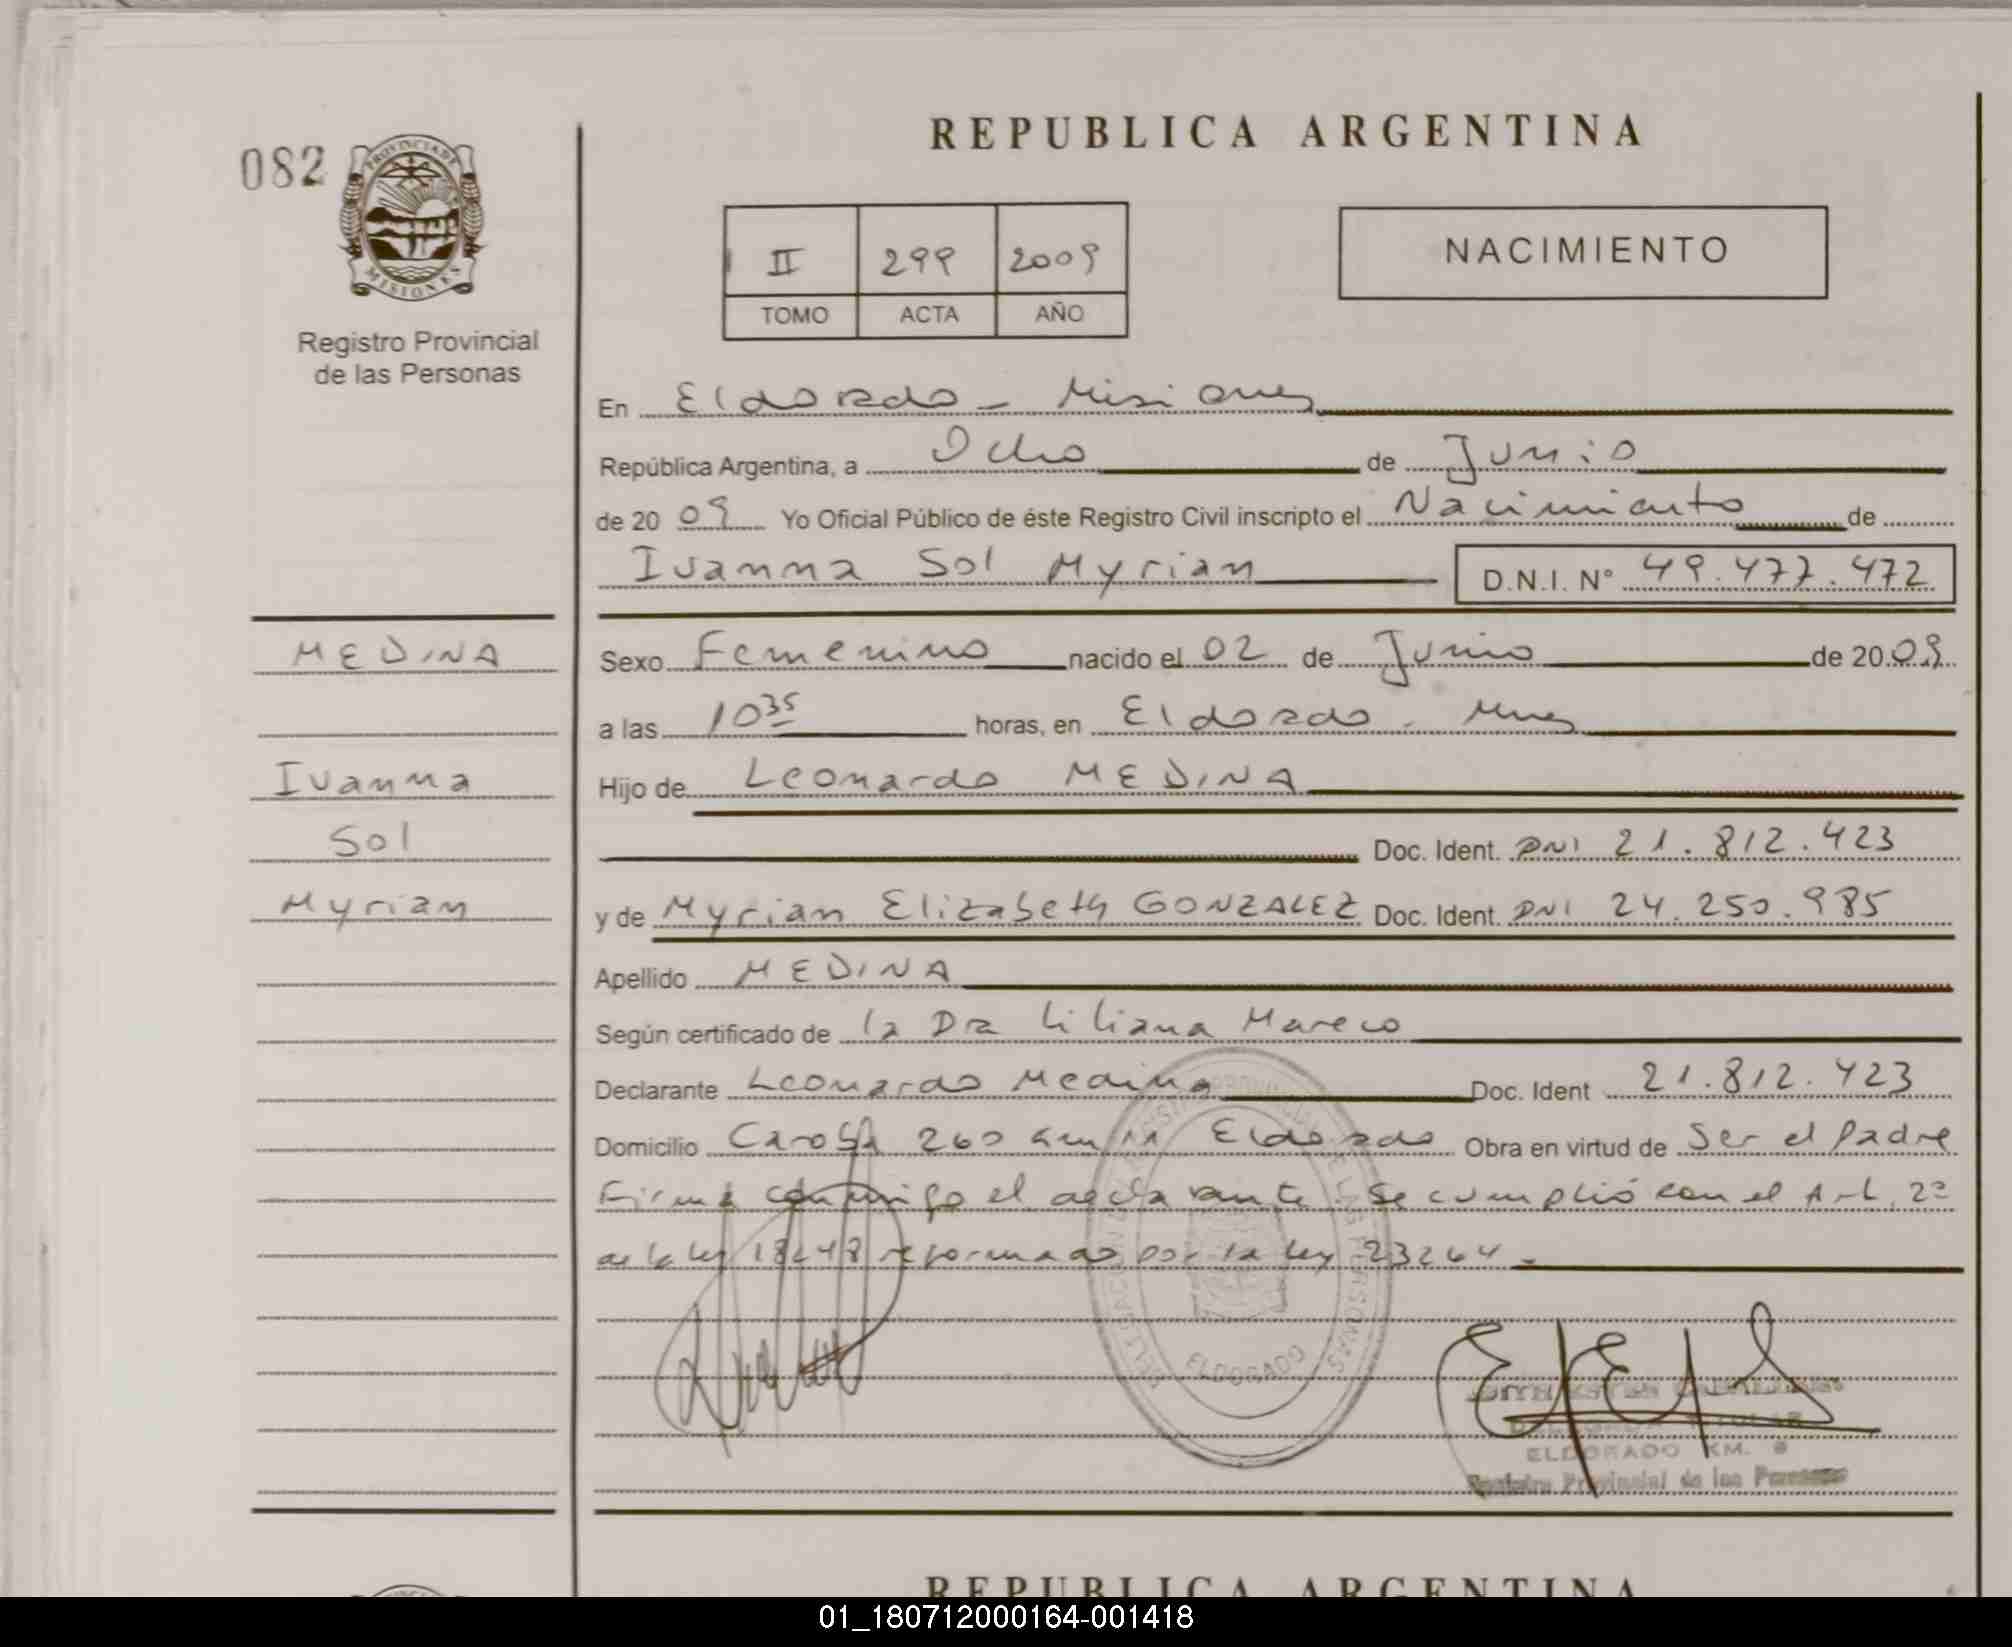 REPUBLICA ARGENTINA
082
PROVINCIA DE
MISIONES
Registro Provincial
de las Personas
II 299 2009
TOMO ACTA AÑO
NACIMIENTO
En Eldorado - Misiones
República Argentina, a Ocho de Junio
de 20 09 Yo Oficial Público de éste Registro Civil inscripto el Nacimiento de
Ivanna Sol Myrian D.N.I. N° 49.477.472
MEDINA
Ivanna
Sol
Myrian
Sexo Femenino nacido el 02 de Junio de 20 09
a las 10 35 horas, en Eldorado - Mnes
Hijo de Leonardo MEDINA
Doc. Ident. DNI 21.812.423
y de Myrian Elizabeth GONZALEZ Doc. Ident. DNI 24.250.985
Apellido MEDINA
Según certificado de la Dra Liliana Mareco
Declarante Leonardo Medina Doc. Ident 21.812.423
Domicilio 260 Km Eldorado Obra en virtud de Ser el Padre
Firma conmigo el declarante. Se cumplió con el Art. 2°
de la ley 18248 reformado por la ley 23264.-
ELDORADO
DELEGADO TITULAR
ELDORADO KM. 9
Registro Provincial de las Personas
REPUBLICA ARGENTINA
01_180712000164-001418